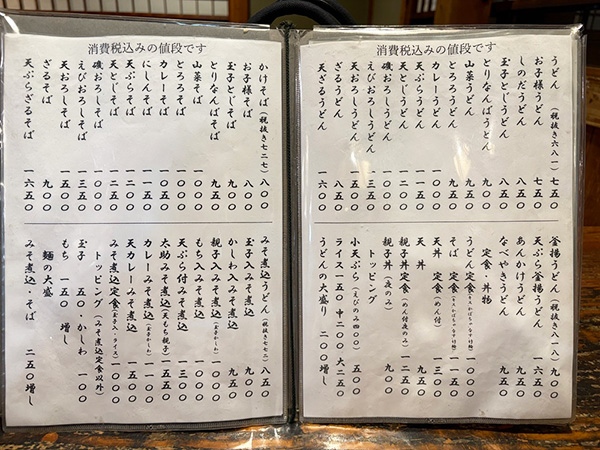 消費税込みの値段です
うどん (税抜き六八一) 七五〇
お子様うどん 七五〇
しのだうどん 八五〇
玉子とじうどん 八五〇
とりなんばうどん 九五〇
山菜うどん 九五〇
とろろうどん 九五〇
カレーうどん 一〇〇〇
天ぷらうどん
天とじうどん 一二〇〇
磯おろしうどん
えびおろしうどん
天おろしうどん
ざるうどん 八五〇
天ざるうどん 一六〇〇
釜揚うどん (税抜き八一八) 九〇〇
天ぷら釜揚うどん 一六五〇
あんかけうどん 九五〇
なべやきうどん
定食・丼物
うどん定食
そば 定食
天丼 定食 (めん付) 一三〇〇
天丼 九〇〇
親子丼定食 (めん付夜のみ) 一二五〇
親子丼 (夜のみ) 九〇〇
トッピング
小天ぷら (えびのみ四〇〇) 五〇〇
ライス 一五〇 中二〇〇 大二五〇
うどんの大盛り 二〇〇増し
消費税込みの値段です
かけそば (税抜き七二七) 八〇〇
お子様そば 八〇〇
玉子とじそば 九〇〇
とりなんばそば
山菜そば 一〇〇〇
とろろそば 一〇〇〇
カレーそば
にしんそば 一一五〇
天ぷらそば
天とじそば 一二五〇
磯おろしそば 一〇〇〇
えびおろしそば 一三五〇
天おろしそば 一五〇〇
ざるそば 九〇〇
天ぷらざるそば 一六五〇
みそ煮込うどん (税抜き七七二) 八五〇
玉子入みそ煮込 九〇〇
かしわ入みそ煮込 九五〇
親子入みそ煮込
もち入みそ煮込
天ぷら付みそ煮込 一三〇〇
太助みそ煮込 (天もち親子)
カレーみそ煮込 (玉子かしわ) 一一〇〇
天カレーみそ煮込 一五五〇
みそ煮込定食 (玉子入・ライス) 一〇〇〇
トッピング (みそ煮込定食以外)
玉子 五〇・かしわ 一〇〇
もち 一五〇 増し
麺の大盛
みそ煮込・そば 二五〇増し